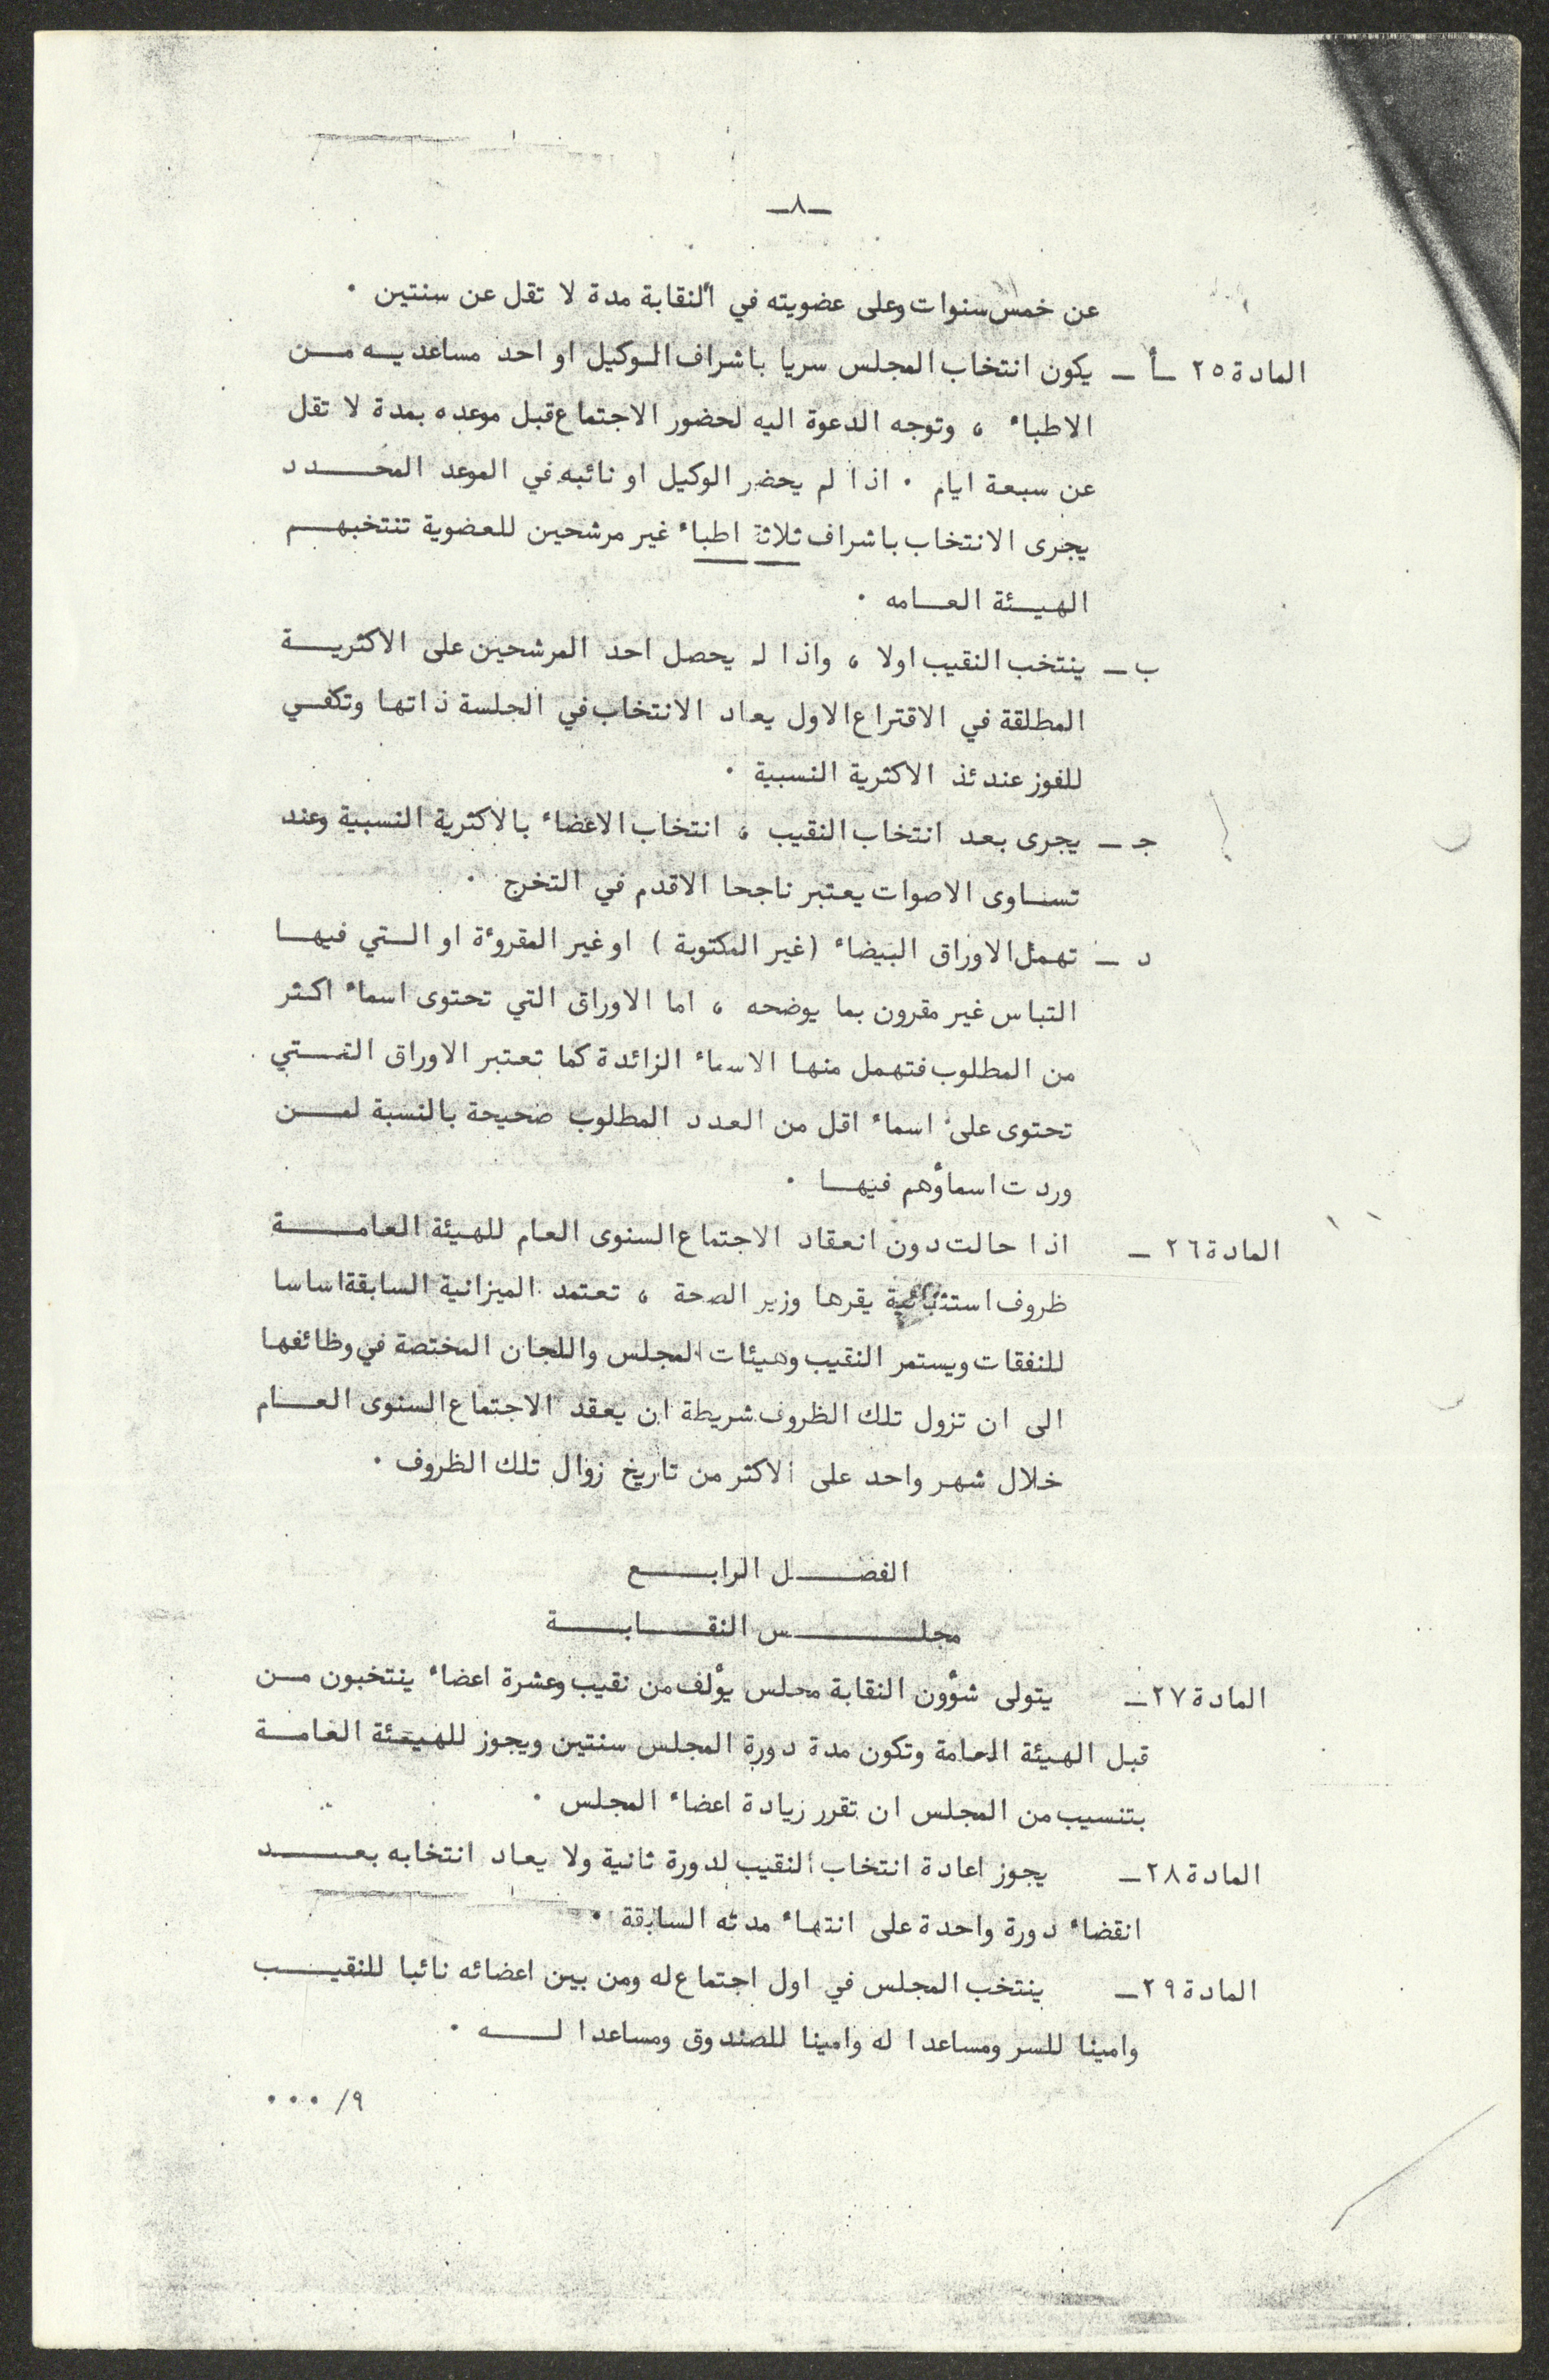 ـ٨ـ
عن خمس سنوات وعلى عضويته في النقابة مدة لا تقل عن سنتين ٠
المادة ٢٥ ـ أ ـ يكون انتخاب المجلس سريا باشراف الوكيل او احد مساعديه من
الاطباء ، وتوجه الدعوة اليه لحضور الاجتماع قبل موعده بمدة لا تقل
عن سبعة ايام ٠ اذا لم يحضر الوكيل او نائبه في الموعد المحدد
يجرى الانتخاب باشراف ثلاثة اطباء غير مرشحين للعضوية تنتخبهم
الهيئة العامه ٠
ب ـ ينتخب النقيب اولا ، واذا لم يحصل احد المرشحين على الاكثرية
المطلقة في الاقتراع الاول يعاد الانتخاب في الجلسة ذاتها وتكفي
للفوز عندئذ الاكثرية النسبية ٠
جـ ـ يجرى بعد انتخاب النقيب ، انتخاب الاعضاء بالاكثرية النسبية وعند
تساوى الاصوات يعتبر ناجحا الاقدم في التخرج ٠
د ـ تهمل الاوراق البيضاء (غير المكتوبة ) او غير المقروءة او التي فيها
التباس غير مقرون بما يوضحه ، اما الاوراق التي تحتوى اسماء اكثر
من المطلوب فتهمل منها الاسماء الزائدة كما تعتبر الاوراق التي
تحتوى على اسماء اقل من العدد المطلوب صحيحة بالنسبة لمن
وردت اسماؤهم فيها ٠
المادة ٢٦ ـ اذا حالت دون انعقاد الاجتماع السنوى العام للهيئة العامة
ظروف استثنائية يقرها وزير الصحة ، تعتمد الميزانية السابقة اساسا
للنفقات ويستمر النقيب وهيئات المجلس واللجان المختصة في وظائفها
الى ان تزول تلك الظروف شريطة ان يعقد الاجتماع السنوى العام
خلال شهر واحد على الاكثر من تاريخ زوال تلك الظروف ٠
الفصل الرابع
مجلس النقابة
المادة ٢٧ ـ يتولى شؤون النقابة مجلس يؤلف من نقيب وعشرة اعضاء ينتخبون من
قبل الهيئة العامة وتكون مدة دورة المجلس سنتين ويجوز للهيئة العامة
بتنسيب من المجلس ان تقرر زيادة اعضاء المجلس ٠
المادة ٢٨ ـ يجوز اعادة انتخاب النقيب لدورة ثانية ولا يعاد انتخابه بعد
انقضاء دورة واحدة على انتهاء مدته السابقة ٠
المادة ٢٩ ـ ينتخب المجلس في اول اجتماع له ومن بين اعضائه نائبا للنقيب
وامينا للسر ومساعدا له وامينا للصندوق ومساعدا له ٠
٩/ ٠٠٠